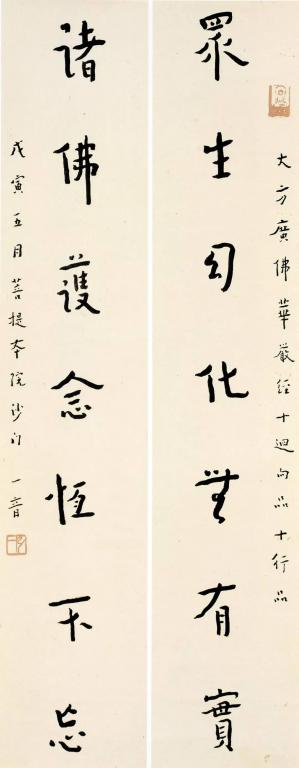 大方廣佛華嚴經十迴向品十行品
眾生幻化無有實
諸佛護念恆不忘
戊寅五月菩提本院沙門一音